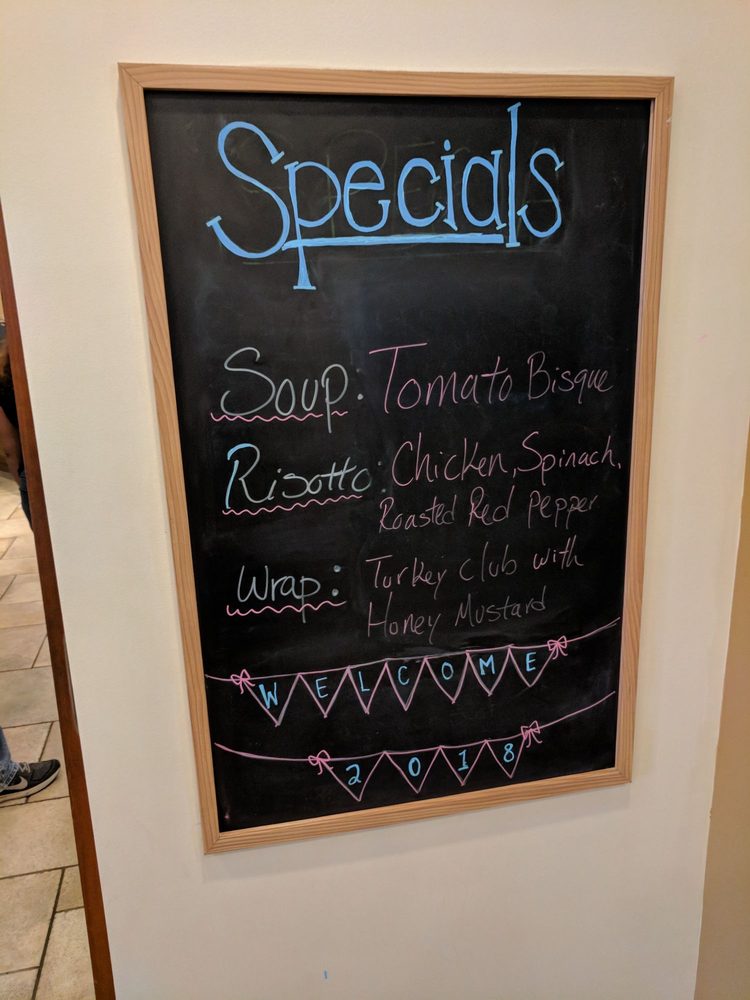 Specials
Soup: Tomato Bisque
Risotto: Chicken, Spinach,
Roasted Red Pepper
Wrap: Turkey club with
Honey Mustard
WELCOME
2018